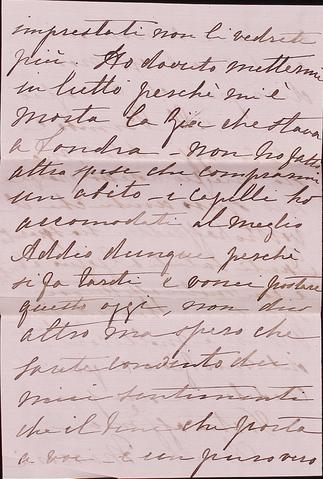 imprestati non li vedrete
più. Ho dovuto mettermi
in lutto perchè mi è
morta la Zia che stava
a Londra - non ho fatto
altra spesa che comprarmi
un abito - i capelli ho
accomodati al meglio
Addio dunque perchè
si fa tardi e vorrei postare
questo oggi, non dico
altro ma spero che
sarete convinto dei
miei sentimenti
che il bene che porto
a voi è un puro vero